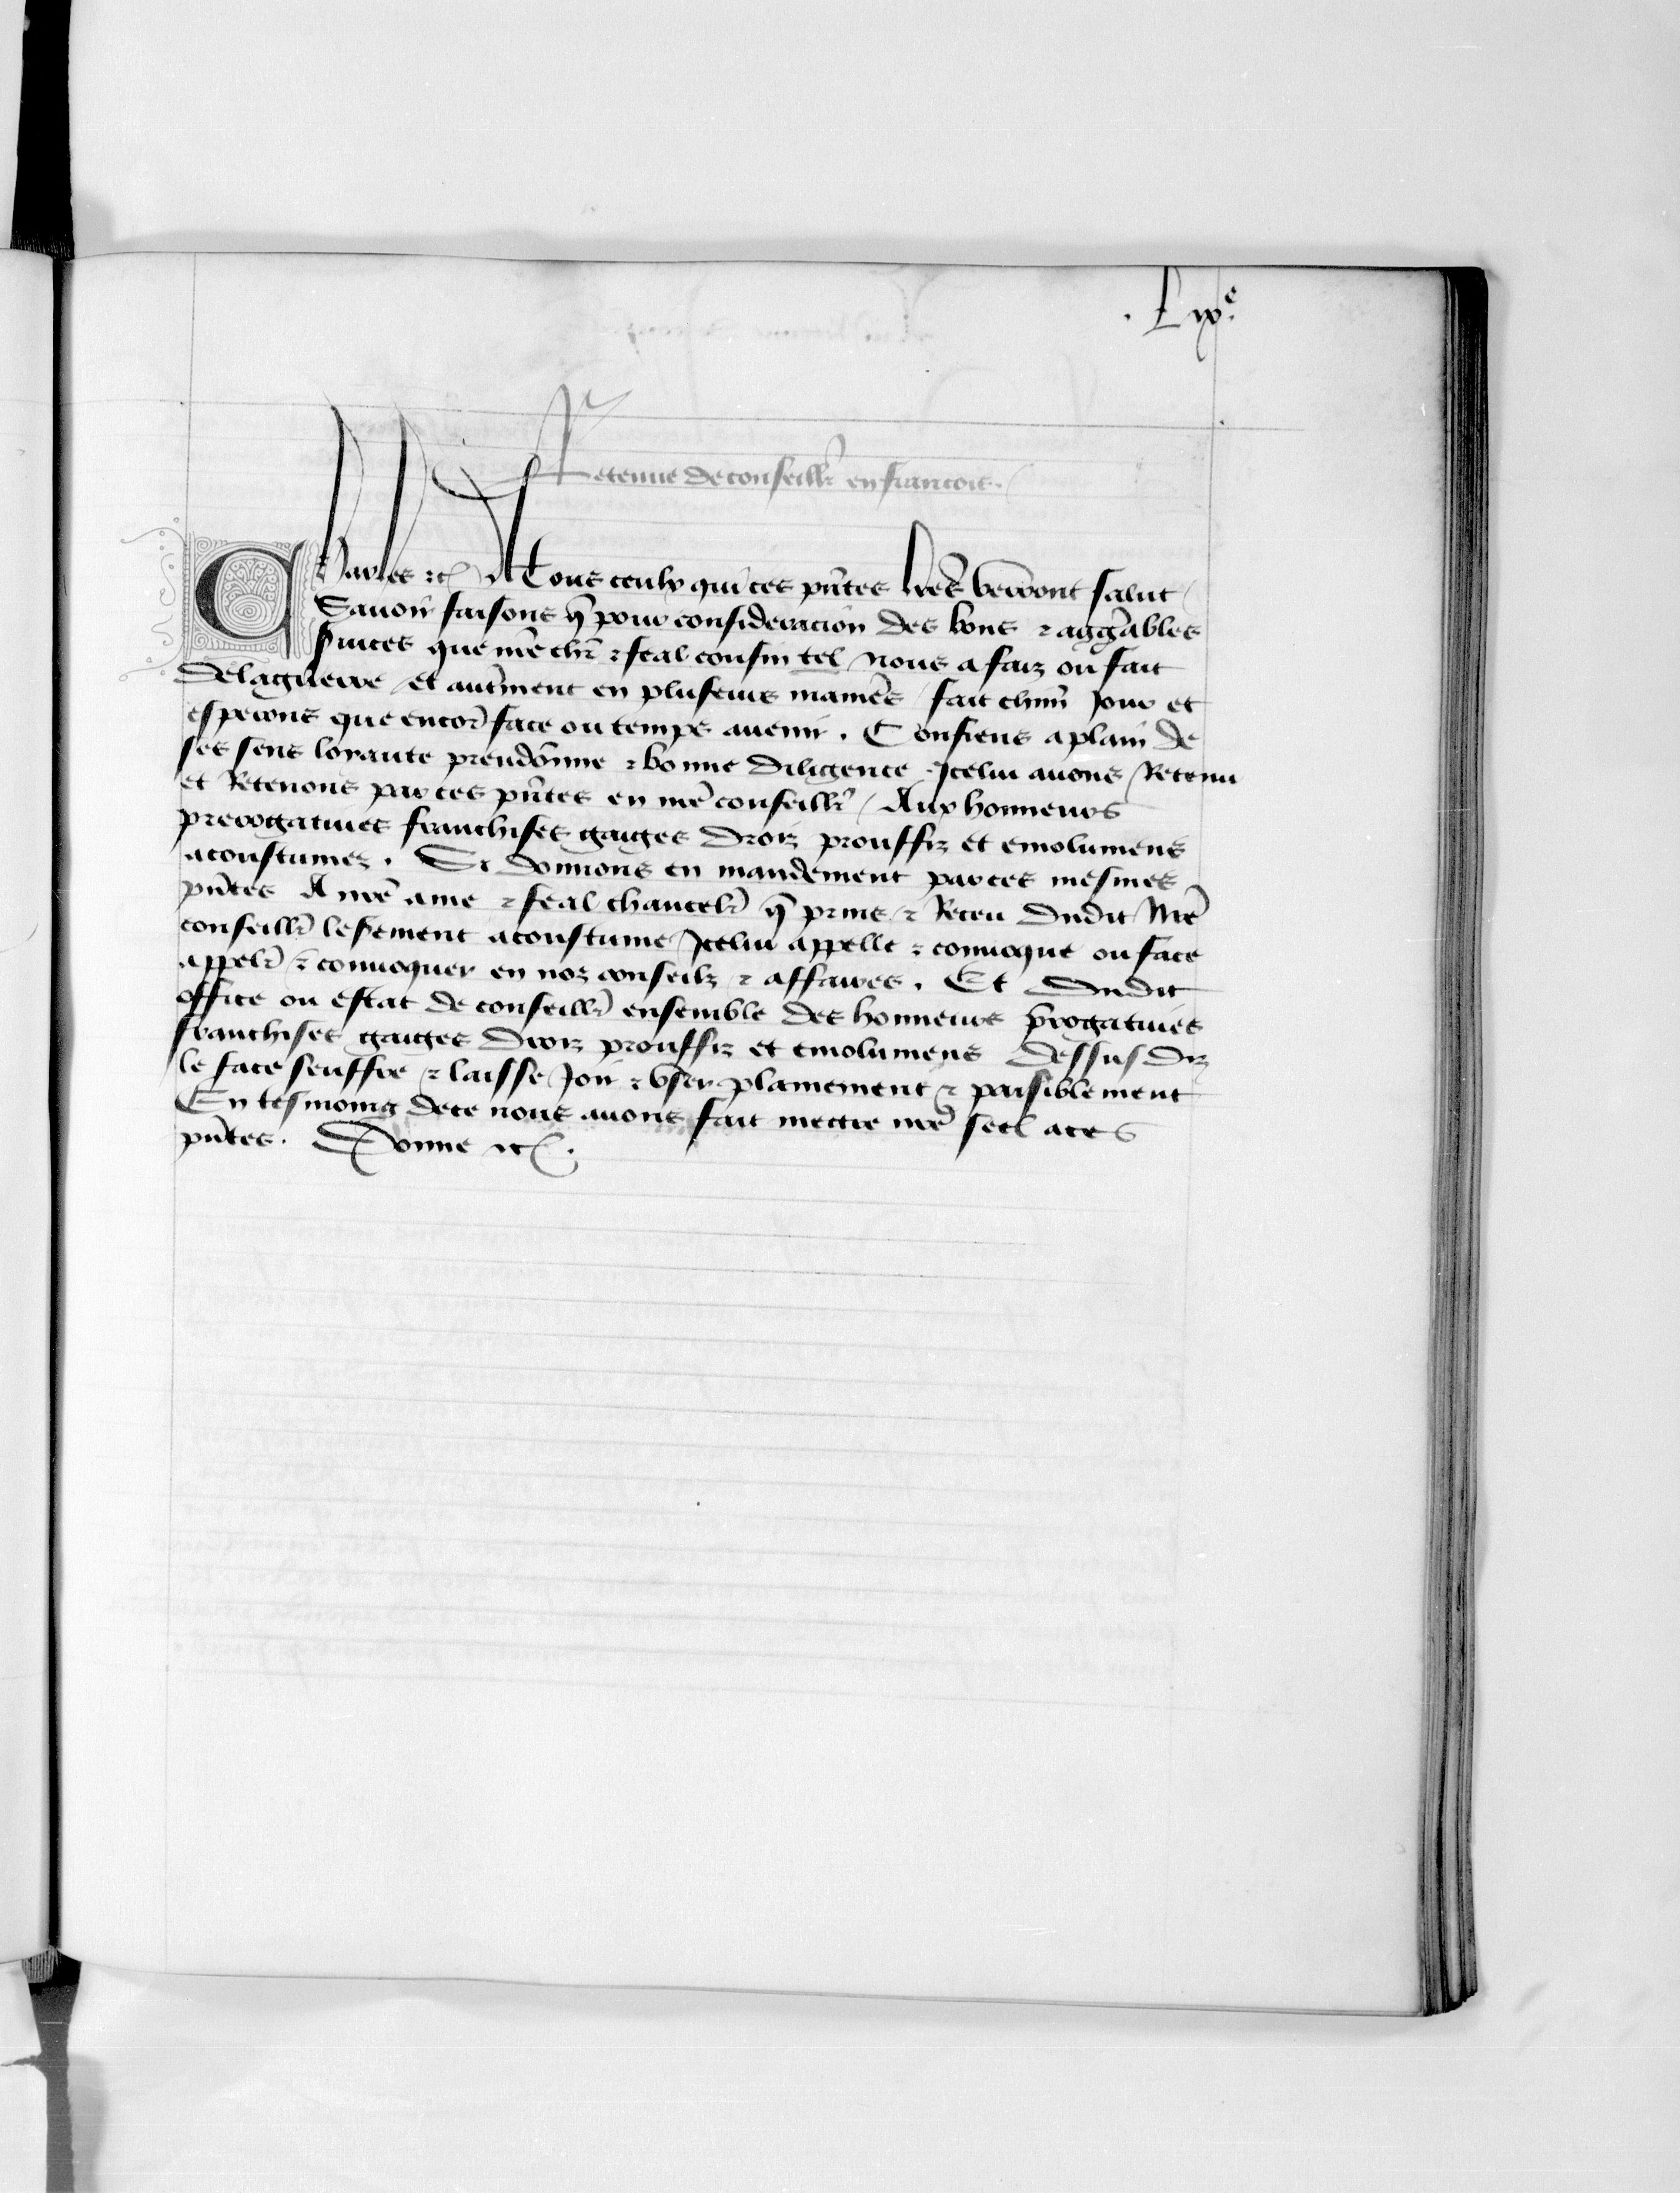 . Lixᵉ.
Retenue de conseillr̄ en francois.
Charles ⁊c̄ A tous ceulx qui ces pn̄tes lrēs verront salut /
Sauoir faisons q̄ pour consideracion des bons ⁊ aggrēables
s̄uices que nrē chr̄ ⁊ feal cousin tel / nous a faiz ou fait
de laguerre / et autm̄ent en plusieurs manier̄s / fait chm̄ Jour et
esperons que encor̄ face ou temps auenir . Confiens aplain de
ses sens loyaute preudōmie ⁊ bonne diligence . Icelui auons / Retenu
et Retenons par ces pn̄tes en nrē conseillr̄ / Aux honneurs
prerogatiues franchises gaiges droiz prouffiz et emolumens
acoustumez . Si donnons en mandement par ces mesmes
pn̄tes A nrē ame ⁊ feal chancelr̄ q̄ prins / ⁊ Receu dudit nrē
conseillr̄ leserement acoustume / Icelui appelle ⁊ conuoque ou face
appelr̄ / ⁊ conuoquer en noz conseilz ⁊ affaires . Et dudit
office ou estat de conseillr̄ ensemble des honneurs p̄rogatiues
franchises gaiges droiz prouffiz et emolumens dessusdiz
le face seuffre ⁊ laisse / Joir ⁊ vser plainement ⁊ paisiblement
En tesmoing dece nous auons fait mectre nrē seel aces
pn̄tes . Donne ⁊c̄ .